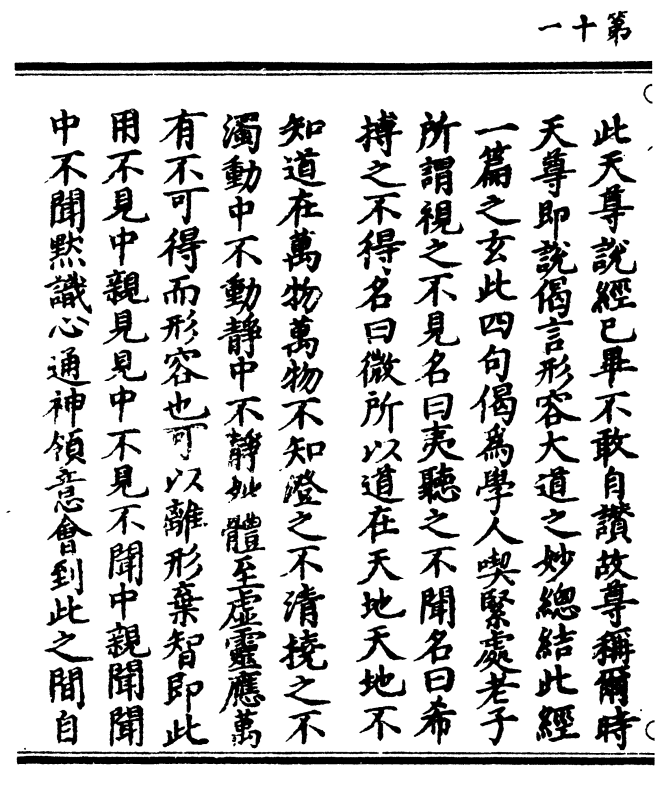 第十一
此天尊說經已畢不敢自讚故尊稱爾時
天尊即說偈言形容大道之妙總結此經
一篇之玄此四句偈為學人喫緊處老子
所謂視之不見名曰夷聽之不聞名曰希
搏之不得名曰微所以道在天地天地不
知道在萬物萬物不知澄之不清撓之不
濁動中不動靜中不靜此體至虛靈應萬
有不可得而形容也可以離形棄智即此
用不見中親見見中不見不聞中親聞聞
中不聞默識心通神領意會到此之間自